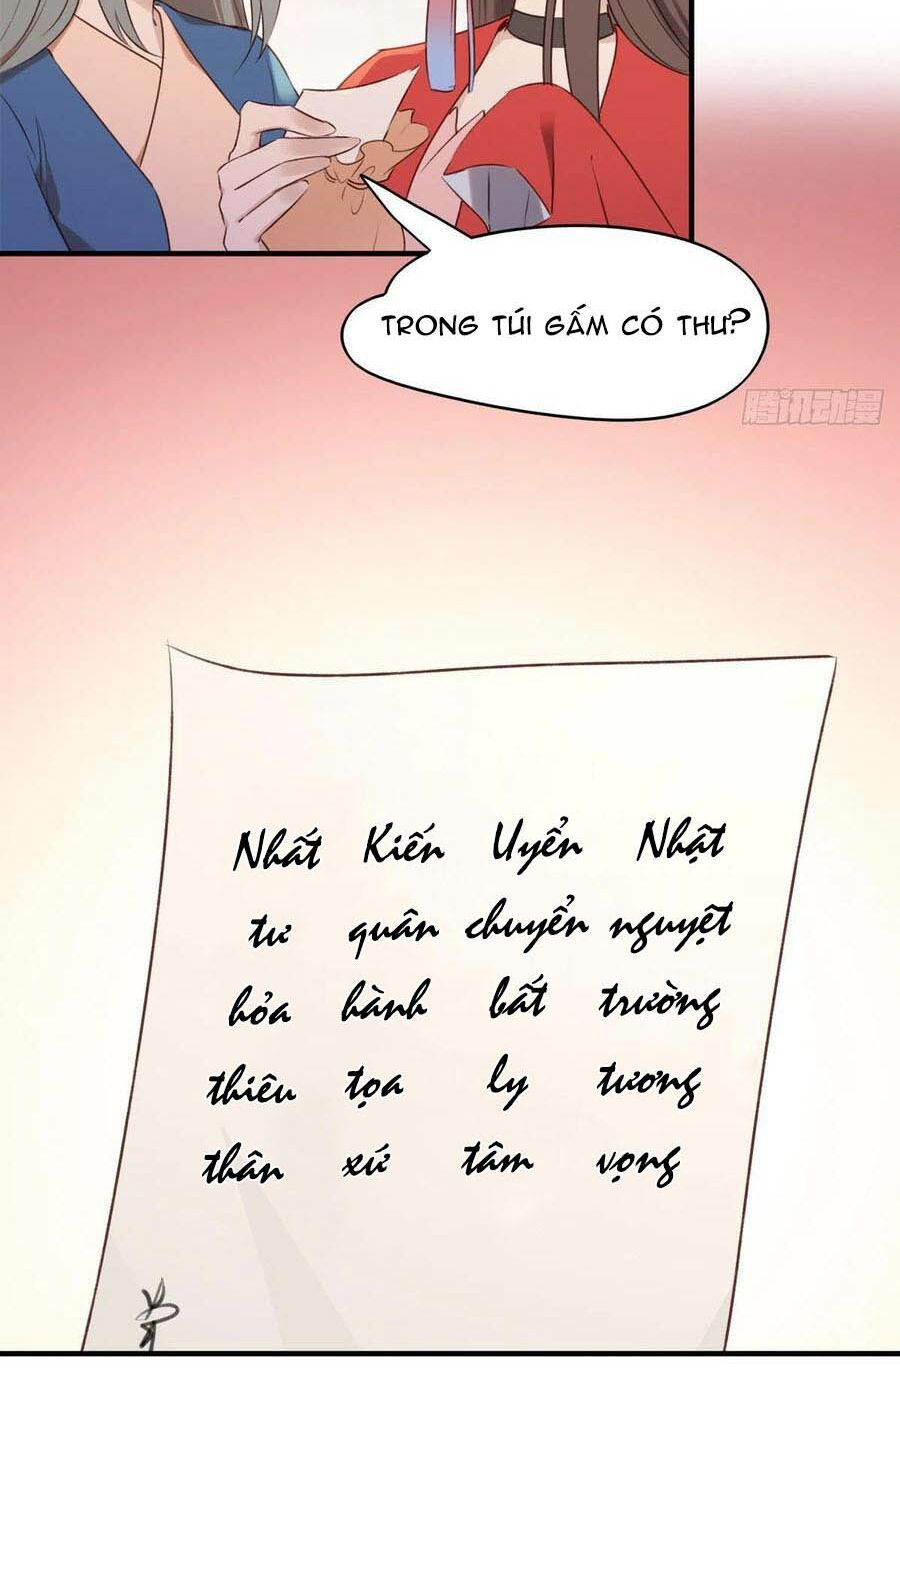 TRONG TÚI GẤM CÓ THƯ?
腾讯动漫
Nhất Kiến Uyển Nhật
tư quân chuyển nguyệt
hỏa hành bất trường
thiêu tọa ly tương
thân xứ tâm vọng